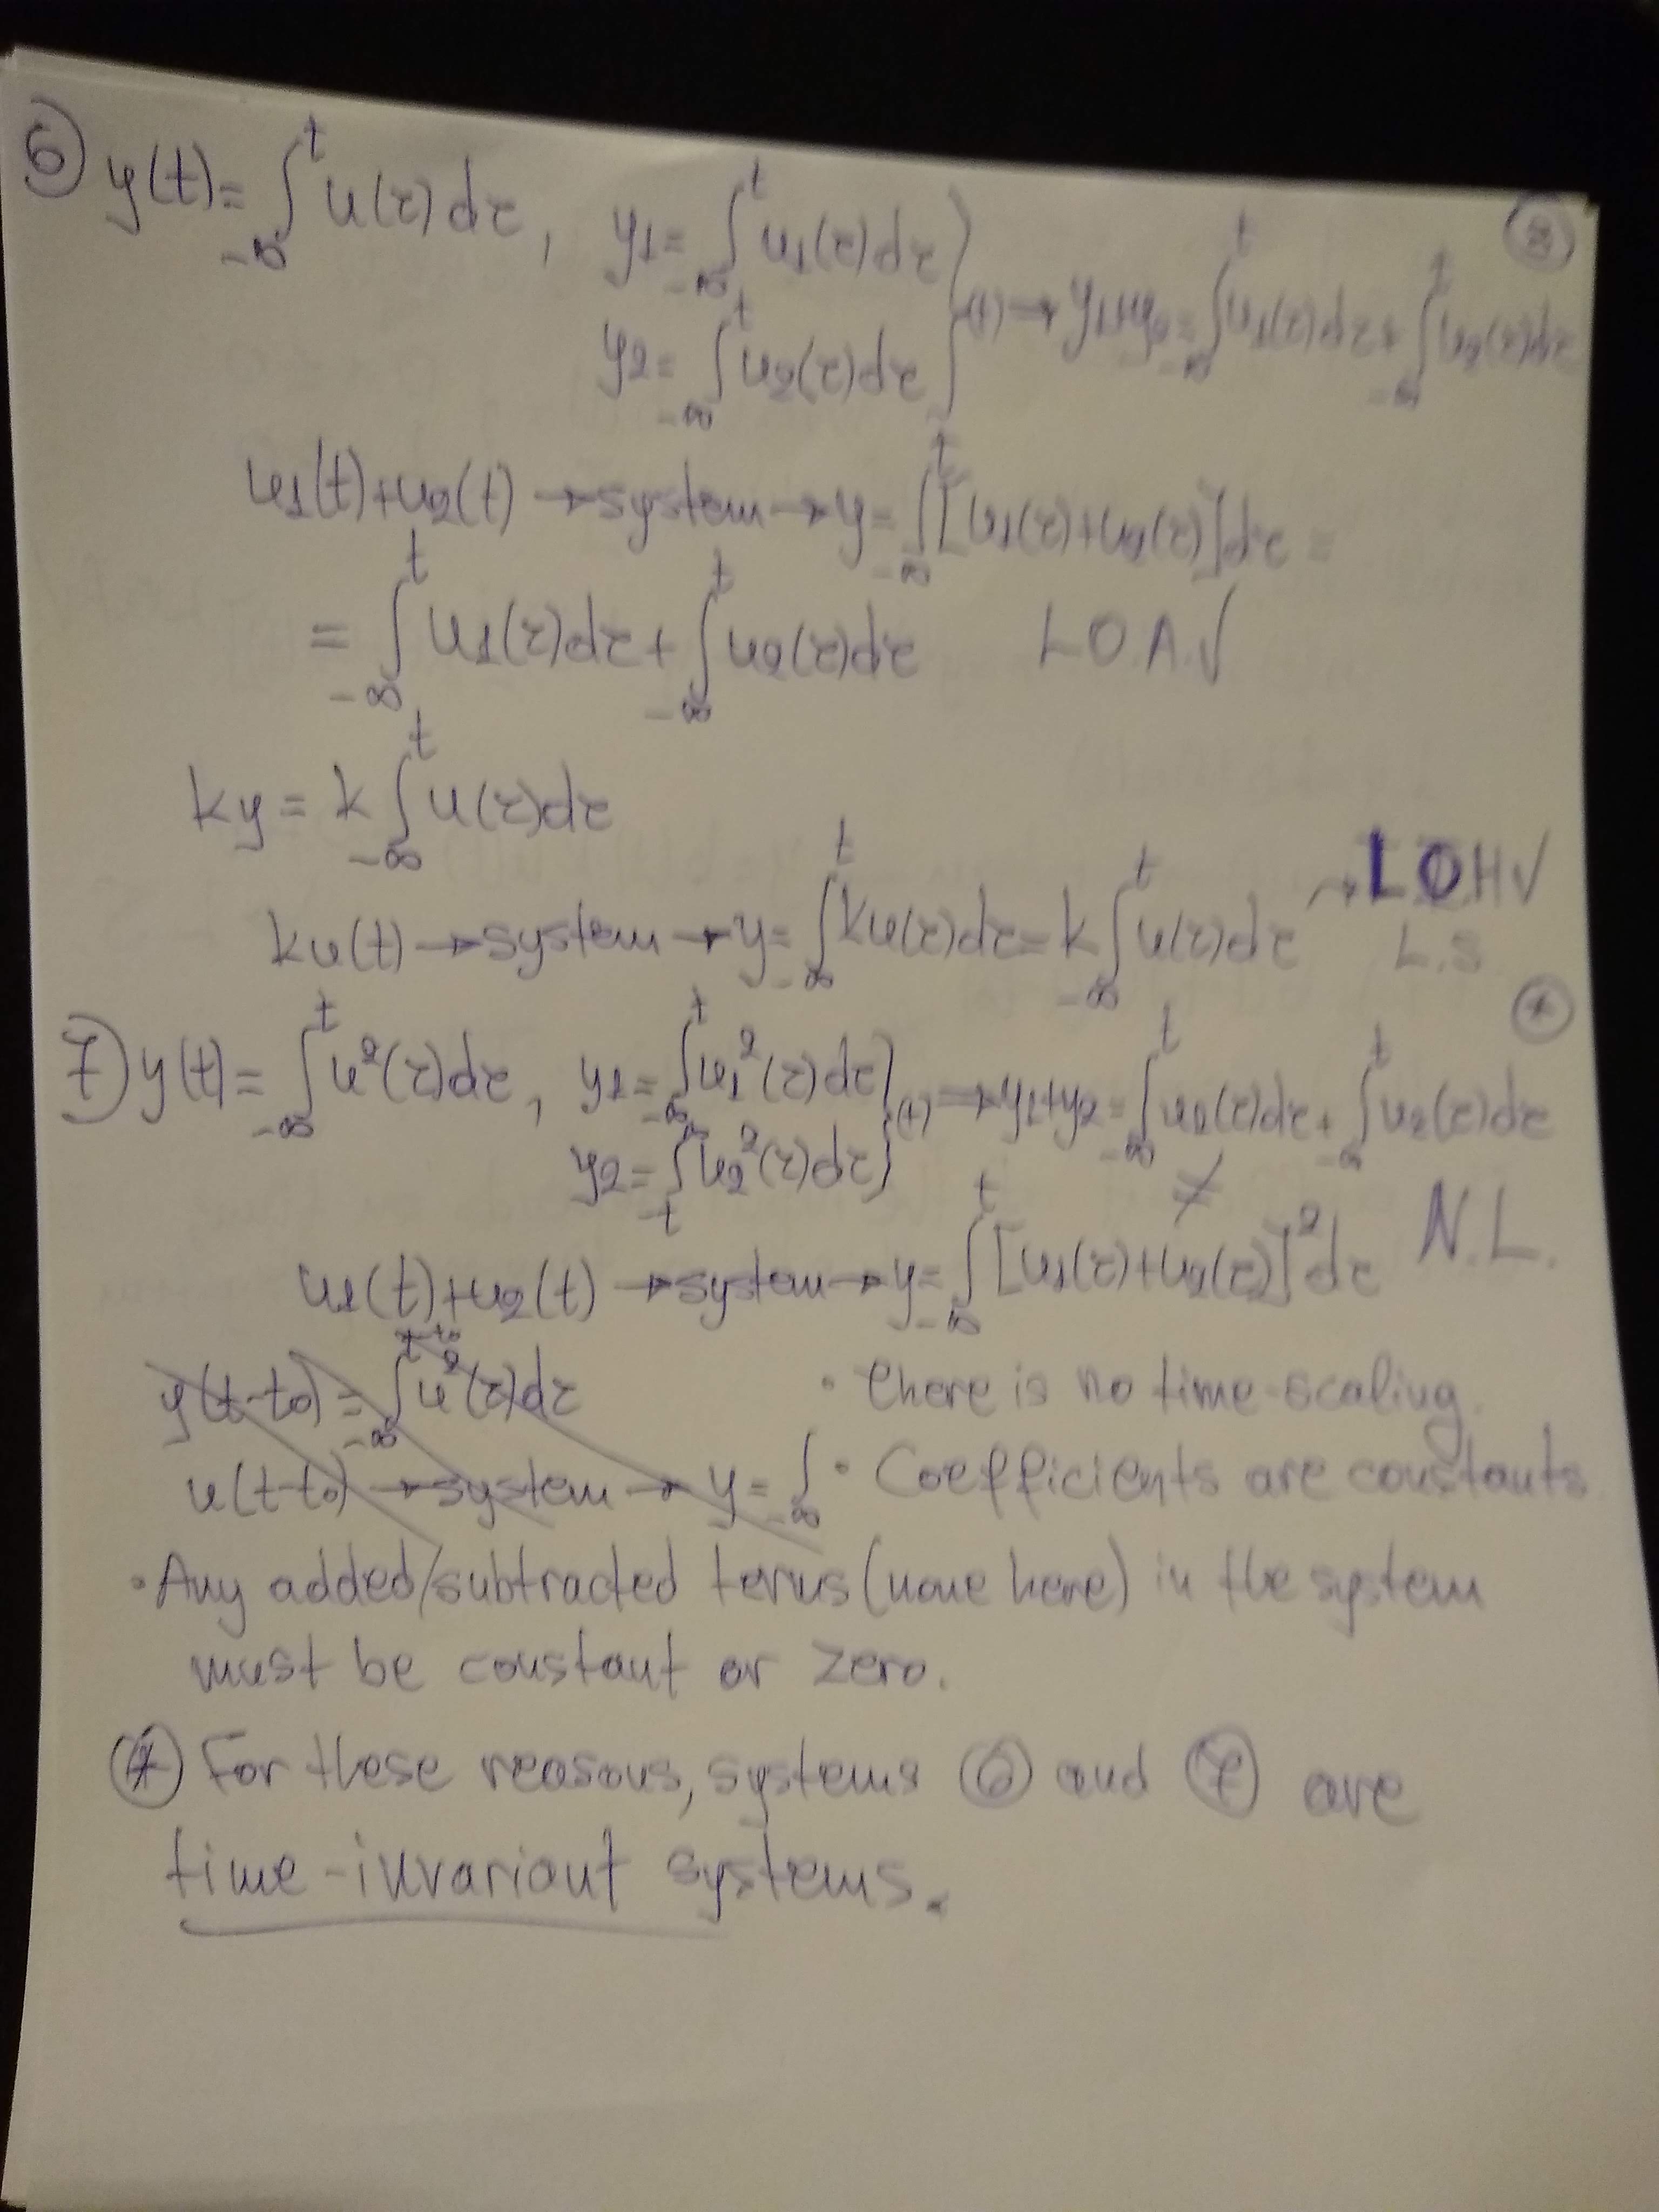 ⑥ y(t)= ∫_{-∞}^{t} u(τ)dτ, y1= ∫_{-∞}^{t} u1(τ)dτ } (+) → y1+y2= ∫_{-∞}^{t} u1(τ)dτ + ∫_{-∞}^{t} u2(τ)dτ
y2= ∫_{-∞}^{t} u2(τ)dτ
u1(t)+u2(t) → system → y= ∫_{-∞}^{t} [u1(τ)+u2(τ)]dτ =
= ∫_{-∞}^{t} u1(τ)dτ + ∫_{-∞}^{t} u2(τ)dτ L.O.A.√
ky = k ∫_{-∞}^{t} u(τ)dτ
ku(t) → system → y= ∫_{-∞}^{t} ku(τ)dτ= k ∫_{-∞}^{t} u(τ)dτ → L.O.H√
L.S
⑦ y(t)= ∫_{-∞}^{t} u²(τ)dτ, y1= ∫_{-∞}^{t} u1²(τ)dτ } (+) ⇒ y1+y2= ∫_{-∞}^{t} u1(τ)dτ + ∫_{-∞}^{t} u2(τ)dτ
y2= ∫ u2²(τ)dτ
≠
u1(t)+u2(t) → system → y= ∫_{-∞}^{t} [u1(τ)+u2(τ)]² dτ N.L.
y(t-t0)= ∫_{-∞}^{t-t0} u²(τ)dτ • there is no time-scaling.
u(t-t0) → system → y= ∫_{-∞} • Coefficients are constants
• Any added/subtracted terms (none here) in the system
must be constant or zero.
(*) For these reasons, systems ⑥ and ⑦ are
time-invariant systems.